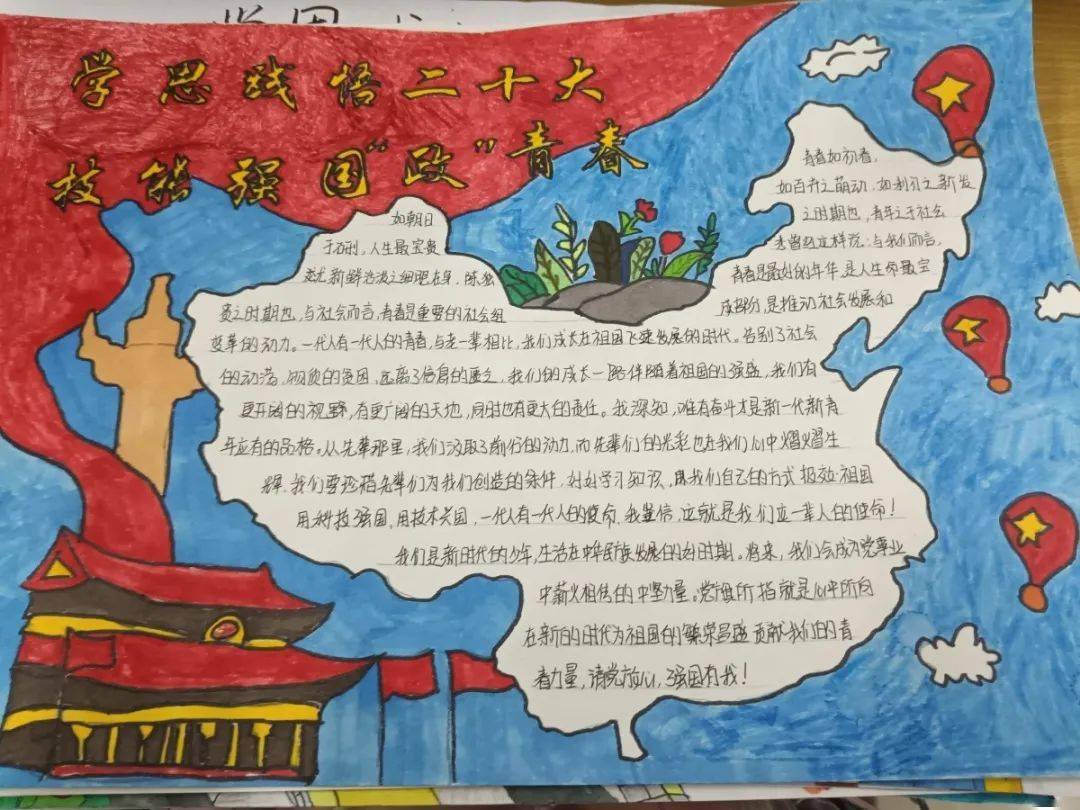 学思践悟二十大
技能强国“政”青春
青春如初春,
如朝日
如百卉之萌动,如利刃之新发
于硎,人生最宝贵
之时期也,青年之于社会
新鲜活泼之细胞在身,陈独
秀曾经这样说:与我们而言,
青春是最好的年华,是人生命最宝
贵之时期也,与社会而言,青春是重要的社会组
成部分,是推动社会发展和
变革的动力。一代人有一代人的青春,与老一辈相比,我们成长在祖国飞速发展的时代。告别了社会
的动荡,物质的贫困,远离了信息的匮乏,我们的成长一路伴随着祖国的强盛,我们有
更开阔的视野,有更广阔的天地,同时也有更大的责任。我深知,唯有奋斗才是新一代新青
年应有的品格。从先辈那里,我们汲取了前行的动力,而先辈们的光彩也在我们心中熠熠生
辉,我们要珍惜先辈们为我们创造的条件,好好学习知识,用我们自己的方式报效祖国
用科技强国,用技术兴国,一代人有一代人的使命,我坚信,这就是我们这一辈人的使命!
我们是新时代的少年,生活在中华民族发展的好时期。将来,我们会成为党事业
中薪火相传的中坚力量。党旗所指就是心中所向
在新的时代为祖国的繁荣昌盛贡献我们的青
春力量,请党放心,强国有我!